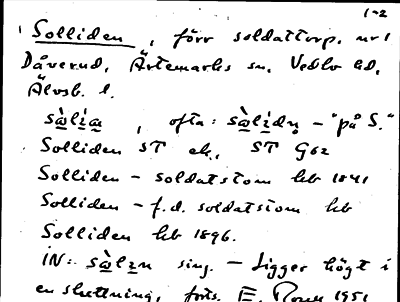 1-2
Solliden, förr soldattorp, nr 1
Dåverud, Ärtemarks sn, Vedbo hd,
Älvsb. l.
sɑ̀li̱a, ofta: sɑ̀lidn̥ - "på S."
Solliden ST ek., ST G62
Solliden - soldatstom hb 1841
Solliden - f.d. soldatstom hb
Solliden hb 1896.
IN: sing. - Ligger högt i
en sluttning, forts. E. 1951